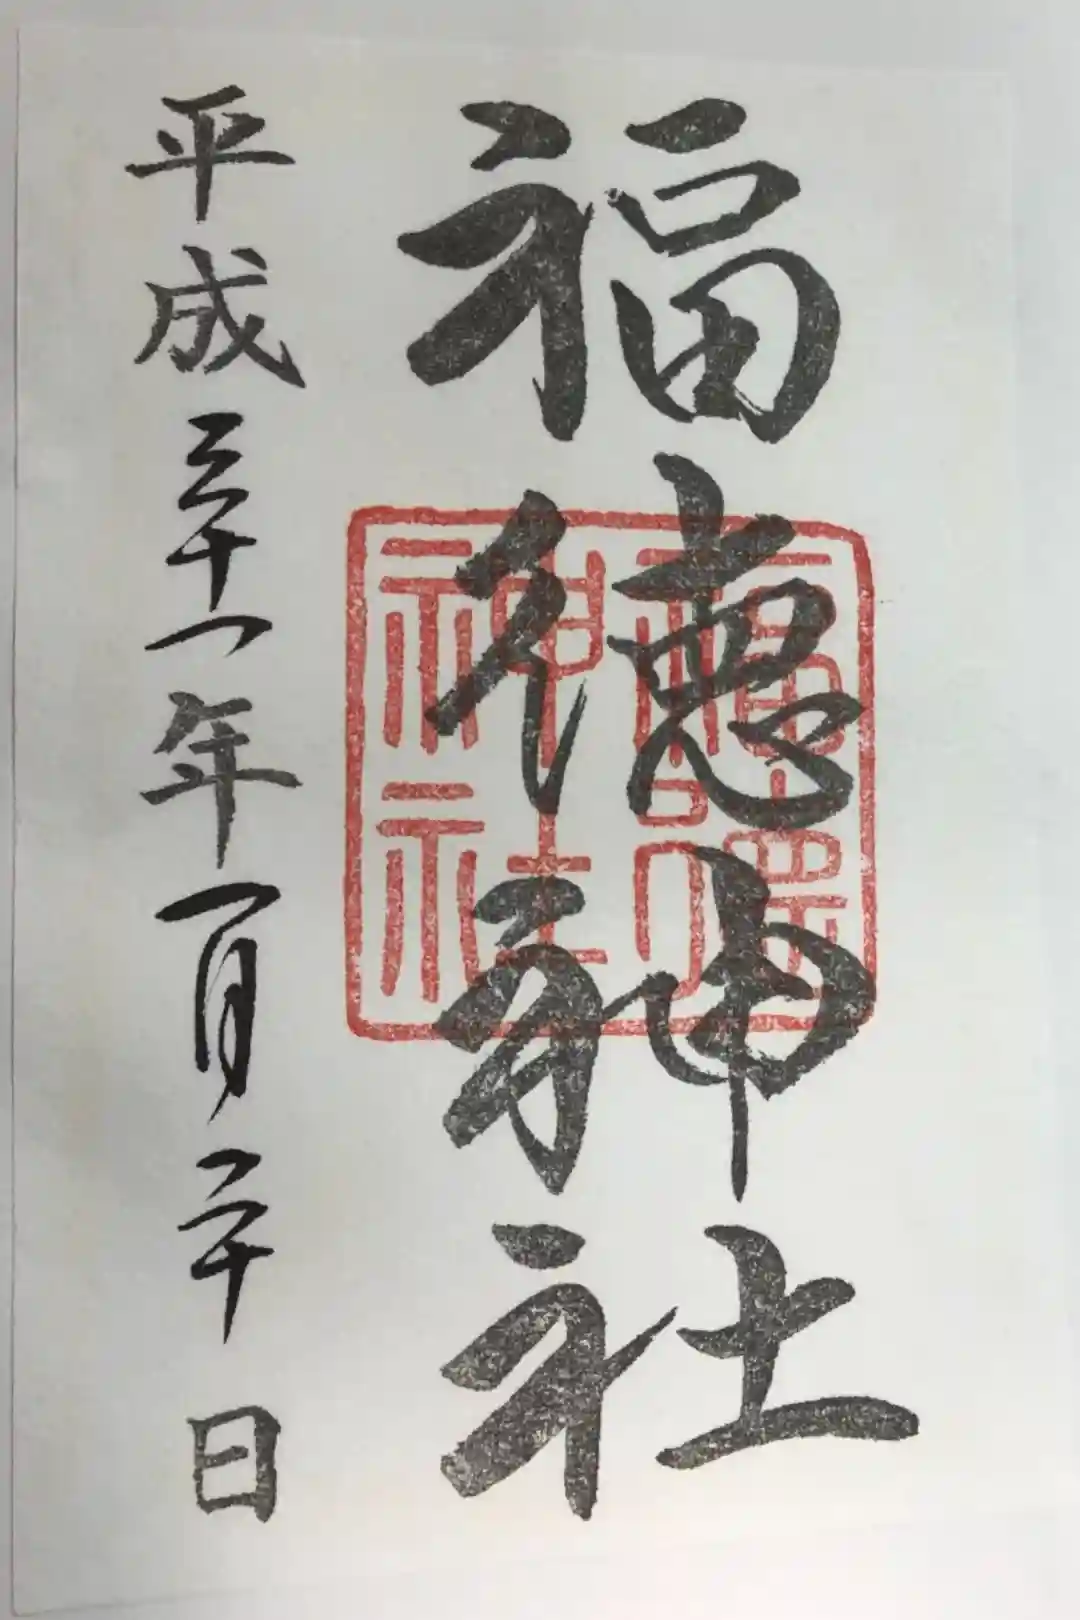 福徳神社
平成三十一年一月二十日
福徳
神社